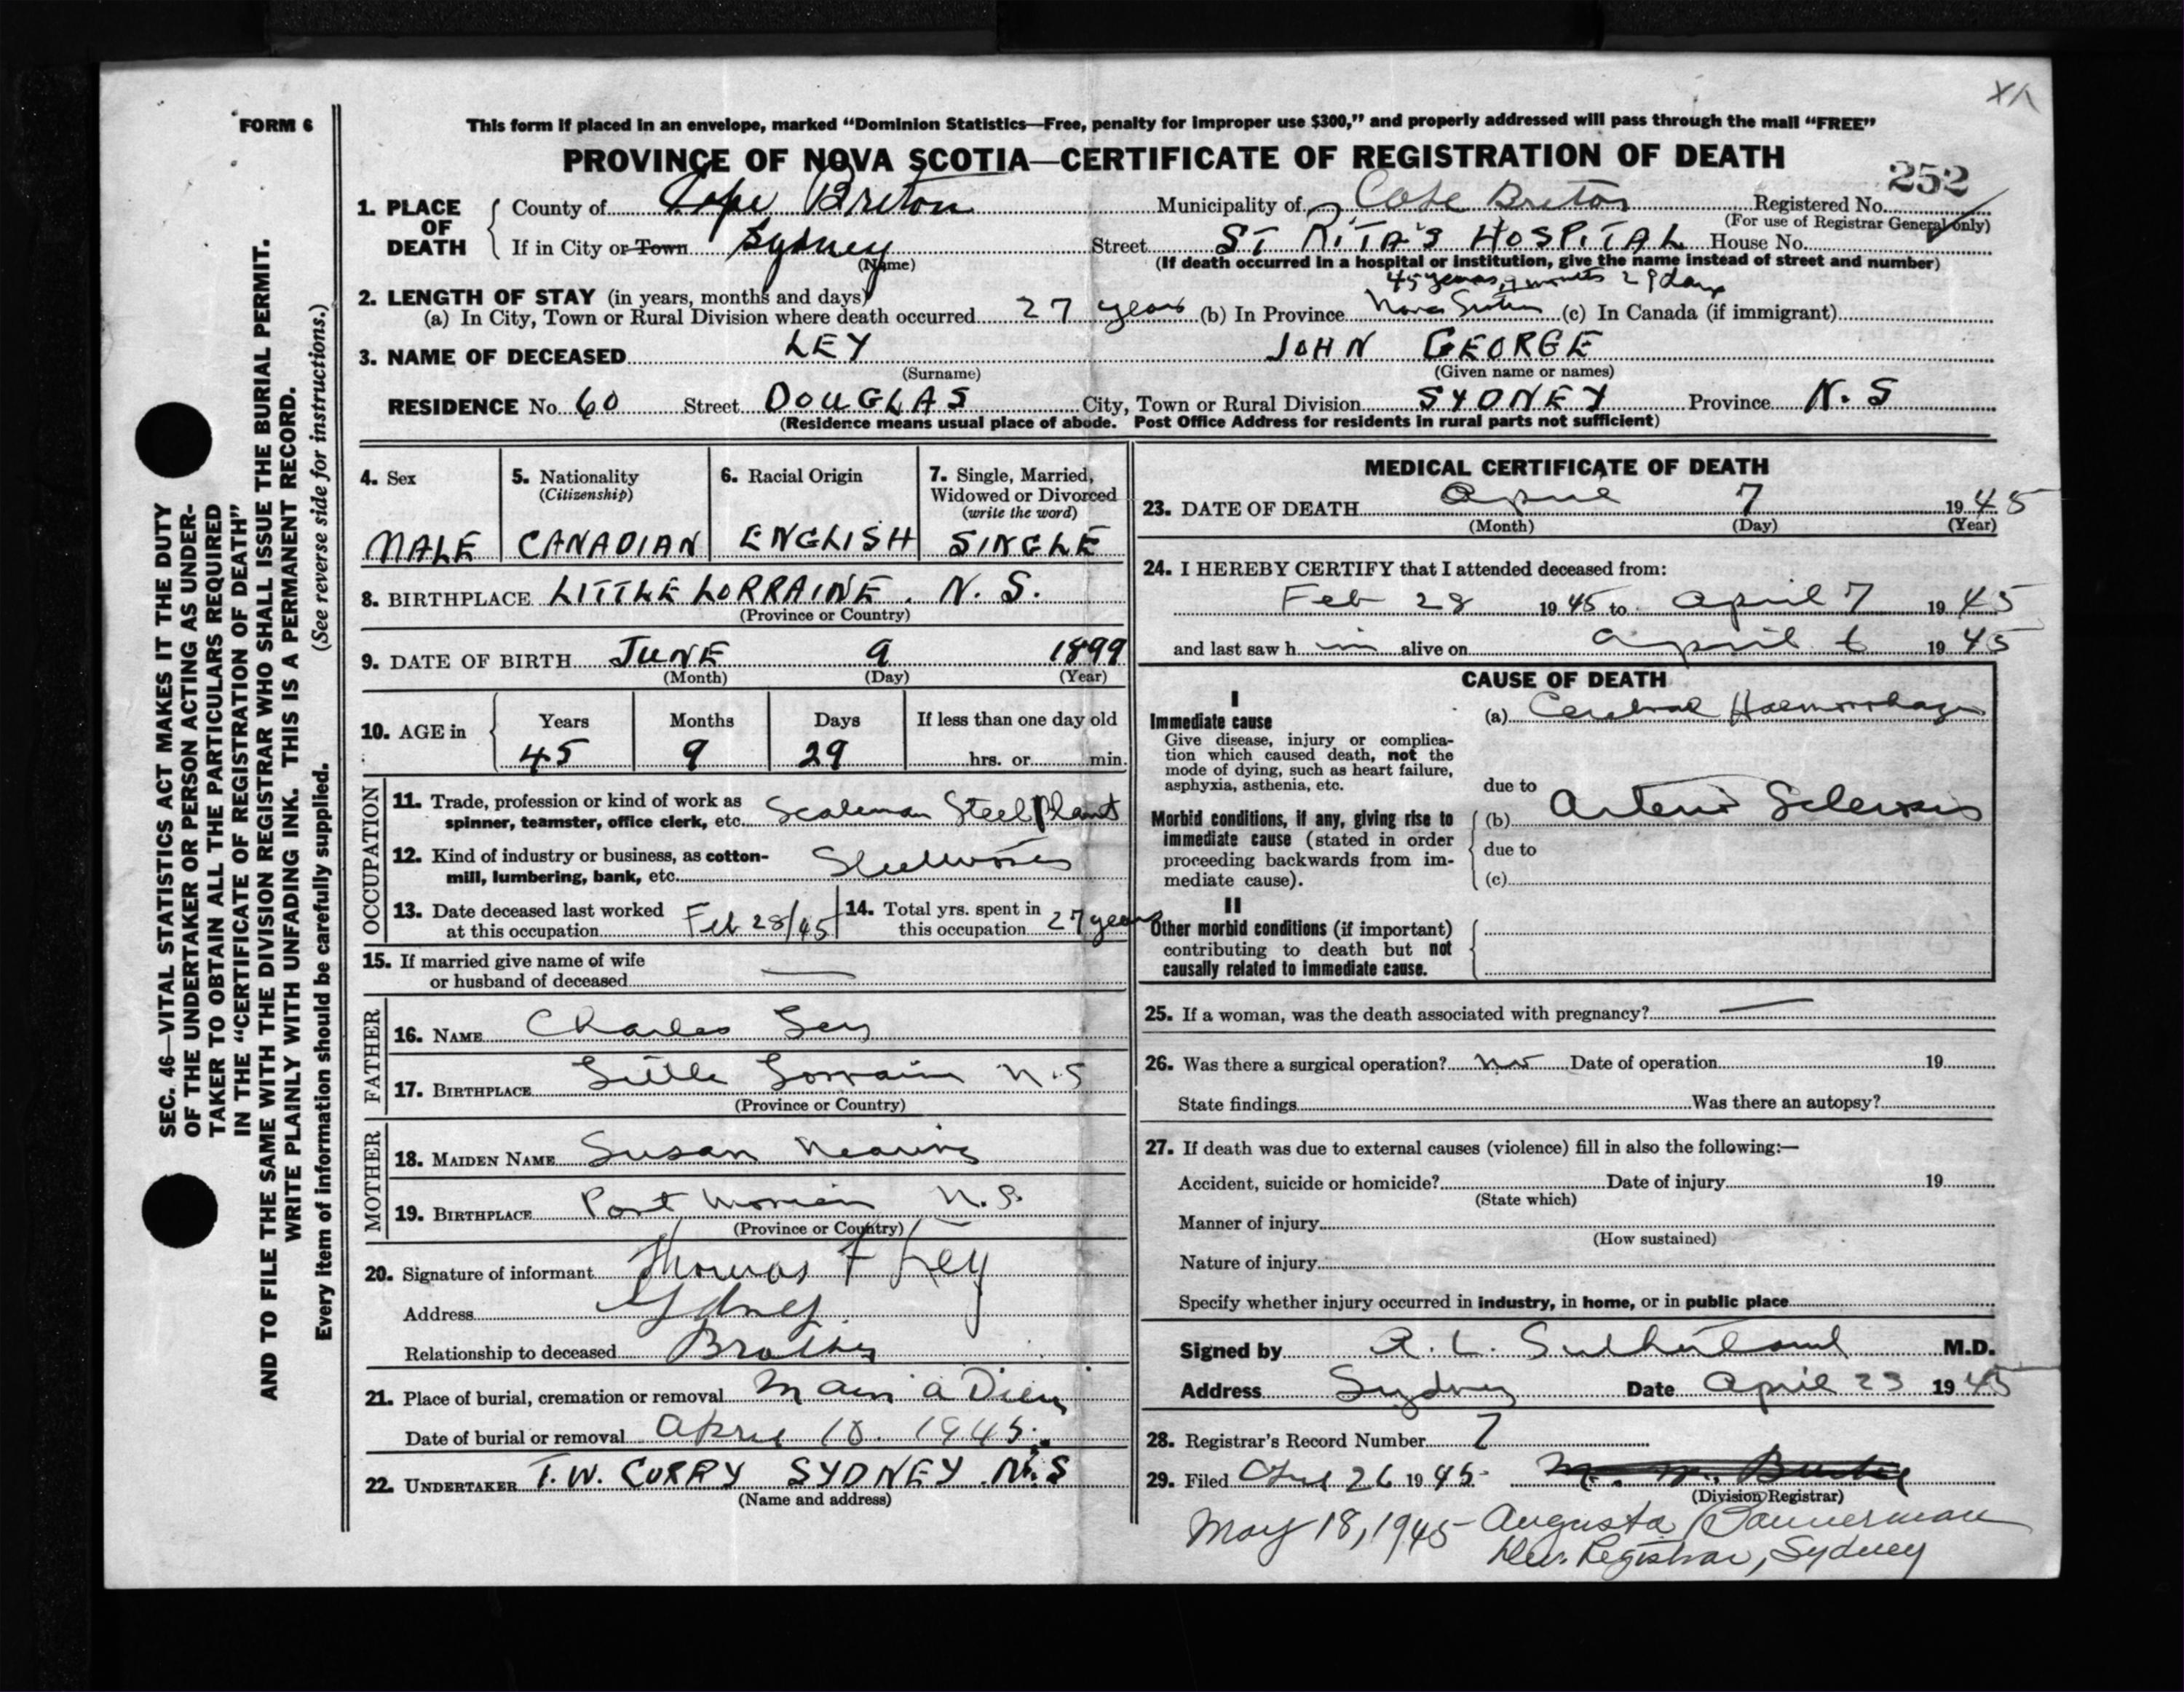 FORM 6
This form if placed in an envelope, marked “Dominion Statistics—Free, penalty for improper use $300,” and properly addressed will pass through the mail “FREE”
PROVINCE OF NOVA SCOTIA—CERTIFICATE OF REGISTRATION OF DEATH
252
1. PLACE OF DEATH
County of Cape Breton Municipality of Cape Breton Registered No.
(For use of Registrar General only)
If in City or Town Sydney Street ST RITA'S HOSPITAL House No.
(Name) (If death occurred in a hospital or institution, give the name instead of street and number)
45 years, 9 months 29 days
2. LENGTH OF STAY (in years, months and days)
(a) In City, Town or Rural Division where death occurred 27 years (b) In Province Nova Scotia (c) In Canada (if immigrant)
3. NAME OF DECEASED LEY JOHN GEORGE
(Surname) (Given name or names)
RESIDENCE No. 60 Street DOUGLAS City, Town or Rural Division SYDNEY Province N. S
(Residence means usual place of abode. Post Office Address for residents in rural parts not sufficient)
4. Sex
MALE
5. Nationality
(Citizenship)
CANADIAN
6. Racial Origin
ENGLISH
7. Single, Married,
Widowed or Divorced
(write the word)
SINGLE
8. BIRTHPLACE LITTLE LORRAINE. N. S.
(Province or Country)
9. DATE OF BIRTH JUNE 9 1899
(Month) (Day) (Year)
10. AGE in
Years Months Days If less than one day old
45 9 29 hrs. or min.
OCCUPATION
11. Trade, profession or kind of work as
spinner, teamster, office clerk, etc. Scaleman Steel Plant
12. Kind of industry or business, as cotton-
mill, lumbering, bank, etc. Steelworks
13. Date deceased last worked
at this occupation Feb 28/45
14. Total yrs. spent in
this occupation 27 years
15. If married give name of wife
or husband of deceased —
FATHER
16. NAME Charles Ley
17. BIRTHPLACE Little Lorraine N.S
(Province or Country)
MOTHER
18. MAIDEN NAME Susan Nearing
19. BIRTHPLACE Port Morien N.S.
(Province or Country)
20. Signature of informant Thomas F Ley
Address Sydney
Relationship to deceased Brother
21. Place of burial, cremation or removal Main a Dieu
Date of burial or removal April 10. 1945.
22. UNDERTAKER T. W. CURRY SYDNEY N.S
(Name and address)
MEDICAL CERTIFICATE OF DEATH
23. DATE OF DEATH April 7 1945
(Month) (Day) (Year)
24. I HEREBY CERTIFY that I attended deceased from:
Feb 28 1945 to April 7 1945
and last saw h im alive on April 6 1945
CAUSE OF DEATH
I
Immediate cause
Give disease, injury or complica-
tion which caused death, not the
mode of dying, such as heart failure,
asphyxia, asthenia, etc.
(a) Cerebral Haemorrhage
due to
Morbid conditions, if any, giving rise to
immediate cause (stated in order
proceeding backwards from im-
mediate cause).
(b) Arterio Sclerosis
due to
(c)
II
Other morbid conditions (if important)
contributing to death but not
causally related to immediate cause.
25. If a woman, was the death associated with pregnancy? —
26. Was there a surgical operation? No Date of operation 19
State findings Was there an autopsy?
27. If death was due to external causes (violence) fill in also the following:—
Accident, suicide or homicide? Date of injury 19
(State which)
Manner of injury
(How sustained)
Nature of injury
Specify whether injury occurred in industry, in home, or in public place
Signed by R. L. Sutherland M.D.
Address Sydney Date April 23 1945
28. Registrar's Record Number 7
29. Filed 26 1945
(Division Registrar)
May 18, 1945 Augusta Bannerman
Div. Registrar, Sydney
SEC. 46—VITAL STATISTICS ACT MAKES IT THE DUTY
OF THE UNDERTAKER OR PERSON ACTING AS UNDER-
TAKER TO OBTAIN ALL THE PARTICULARS REQUIRED
IN THE “CERTIFICATE OF REGISTRATION OF DEATH”
AND TO FILE THE SAME WITH THE DIVISION REGISTRAR WHO SHALL ISSUE THE BURIAL PERMIT.
WRITE PLAINLY WITH UNFADING INK. THIS IS A PERMANENT RECORD.
Every item of information should be carefully supplied. (See reverse side for instructions.)